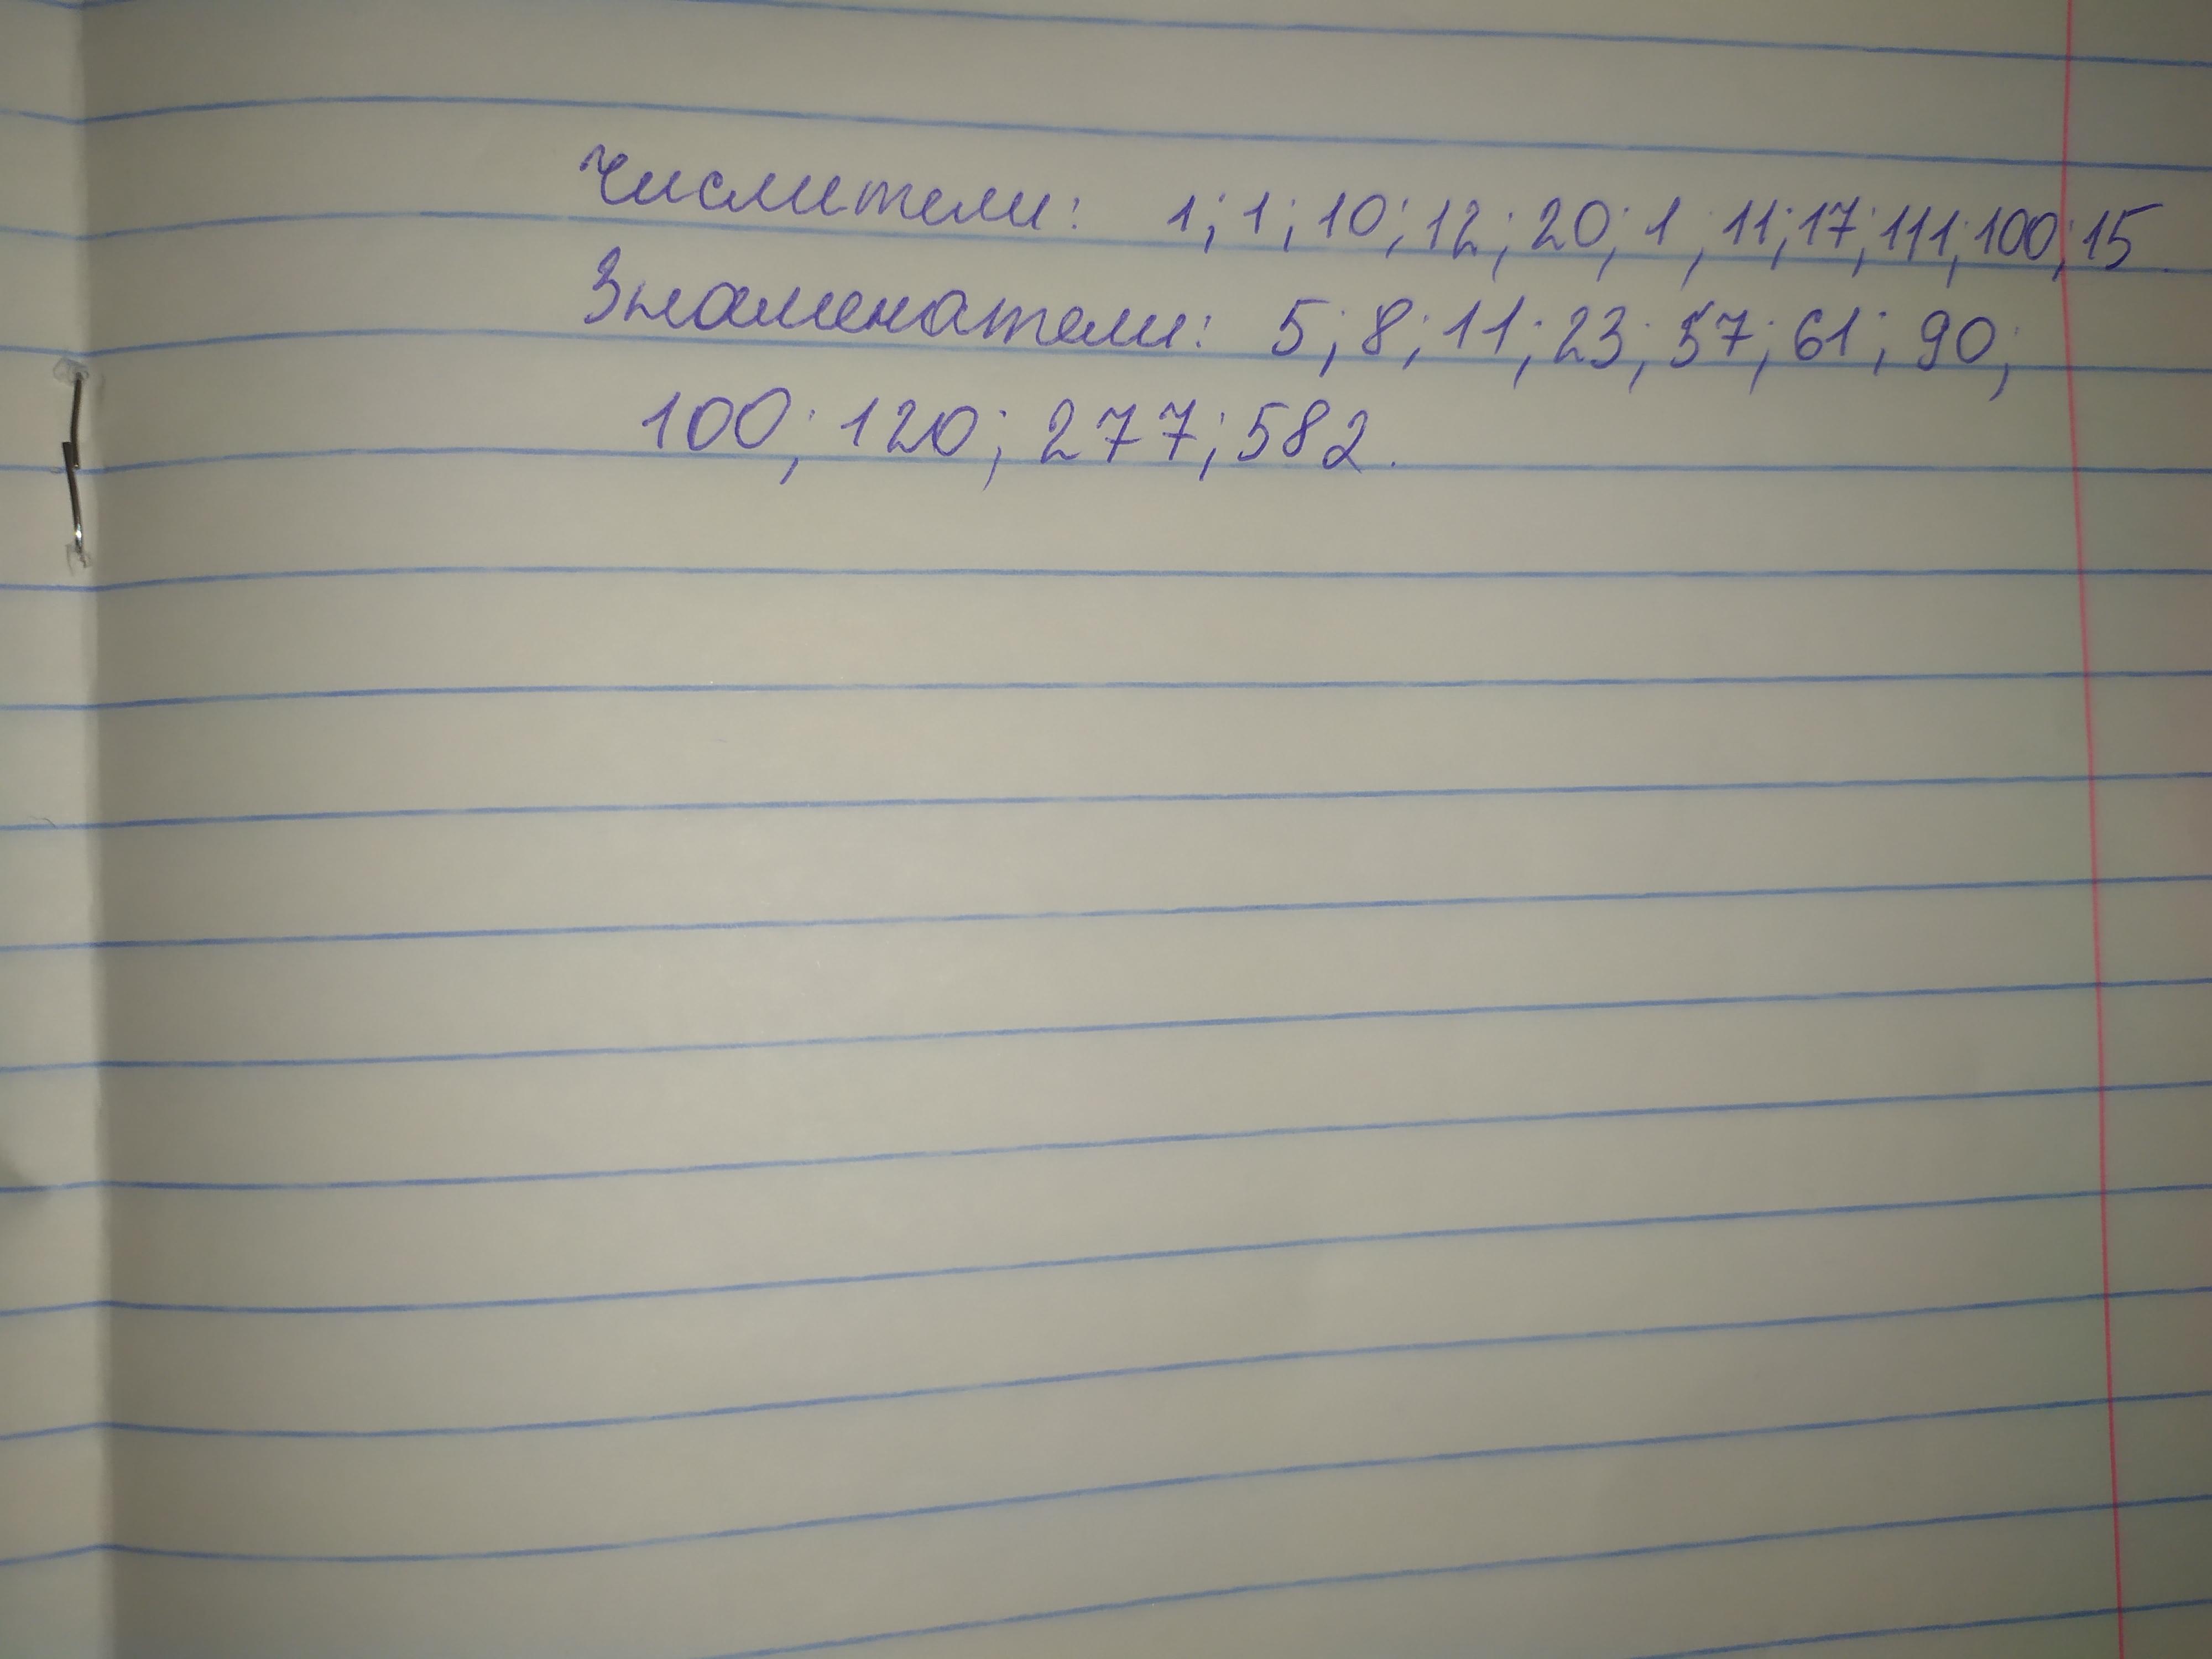 Числители: 1; 1; 10; 12; 20; 1; 11; 17; 111; 100; 15.
Знаменатели: 5; 8; 11; 23; 57; 61; 90;
100; 120; 277; 582.